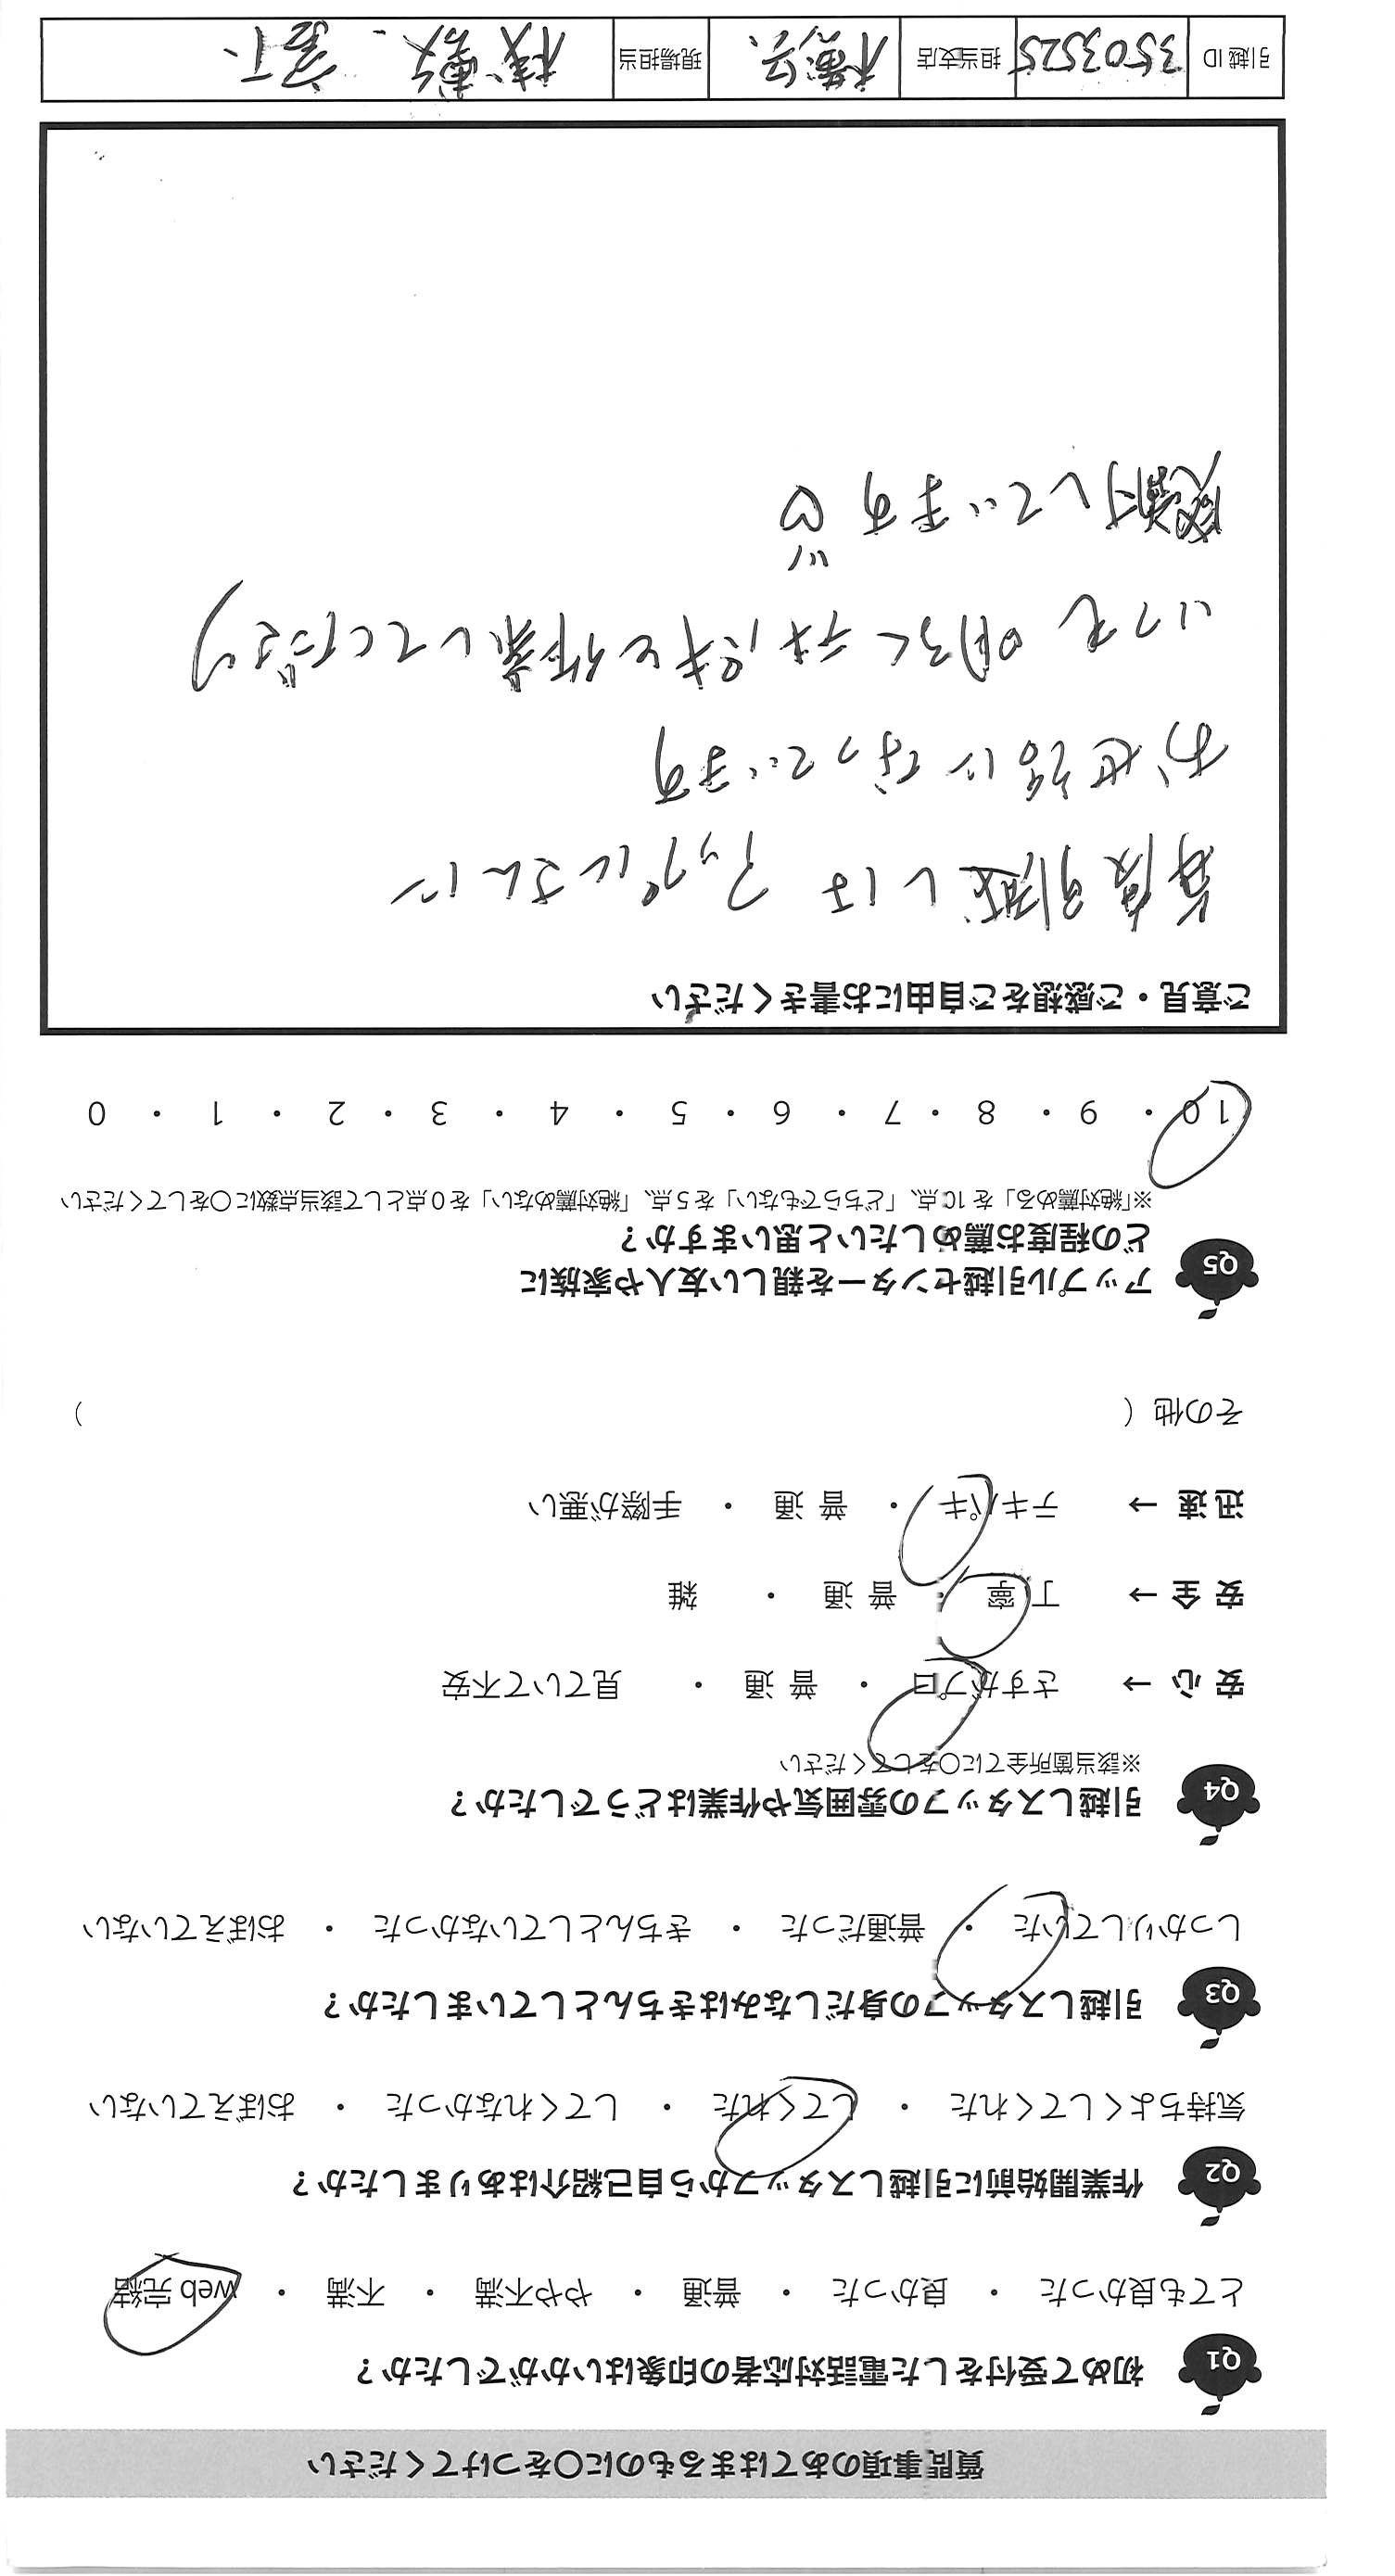 質問事項のあてはまるものに〇をつけてください
Q1 初めて受付をした電話対応者の印象はいかがでしたか？
とても良かった ・ 良かった ・ 普通 ・ やや不満 ・ 不満 ・ web 完結
Q2 作業開始前に引越しスタッフから自己紹介はありましたか？
気持ちよくしてくれた ・ してくれた ・ してくれなかった ・ おぼえていない
Q3 引越しスタッフの身だしなみはきちんとしていましたか？
しっかりしていた ・ 普通だった ・ きちんとしていなかった ・ おぼえていない
Q4 引越しスタッフの雰囲気や作業はどうでしたか？
※該当箇所全てに〇をしてください
安 心 → さすがプロ ・ 普 通 ・ 見ていて不安
安 全 → 丁 寧 ・ 普 通 ・ 雑
迅 速 → テキパキ ・ 普 通 ・ 手際が悪い
その他（ ）
Q5 アップル引越センターを親しい友人や家族に
どの程度お薦めしたいと思いますか？
※「絶対薦める」を 10 点、「どちらでもない」を 5 点、「絶対薦めない」を 0 点として該当点数に〇をしてください
10 ・ 9 ・ 8 ・ 7 ・ 6 ・ 5 ・ 4 ・ 3 ・ 2 ・ 1 ・ 0
ご意見・ご感想をご自由にお書きください
毎度引越しは アップルさんに
お世話になっています
いつも 明るく テキパキと作業してくださり
感謝しています
引越 ID 3503525 担当支店 横浜 現場担当